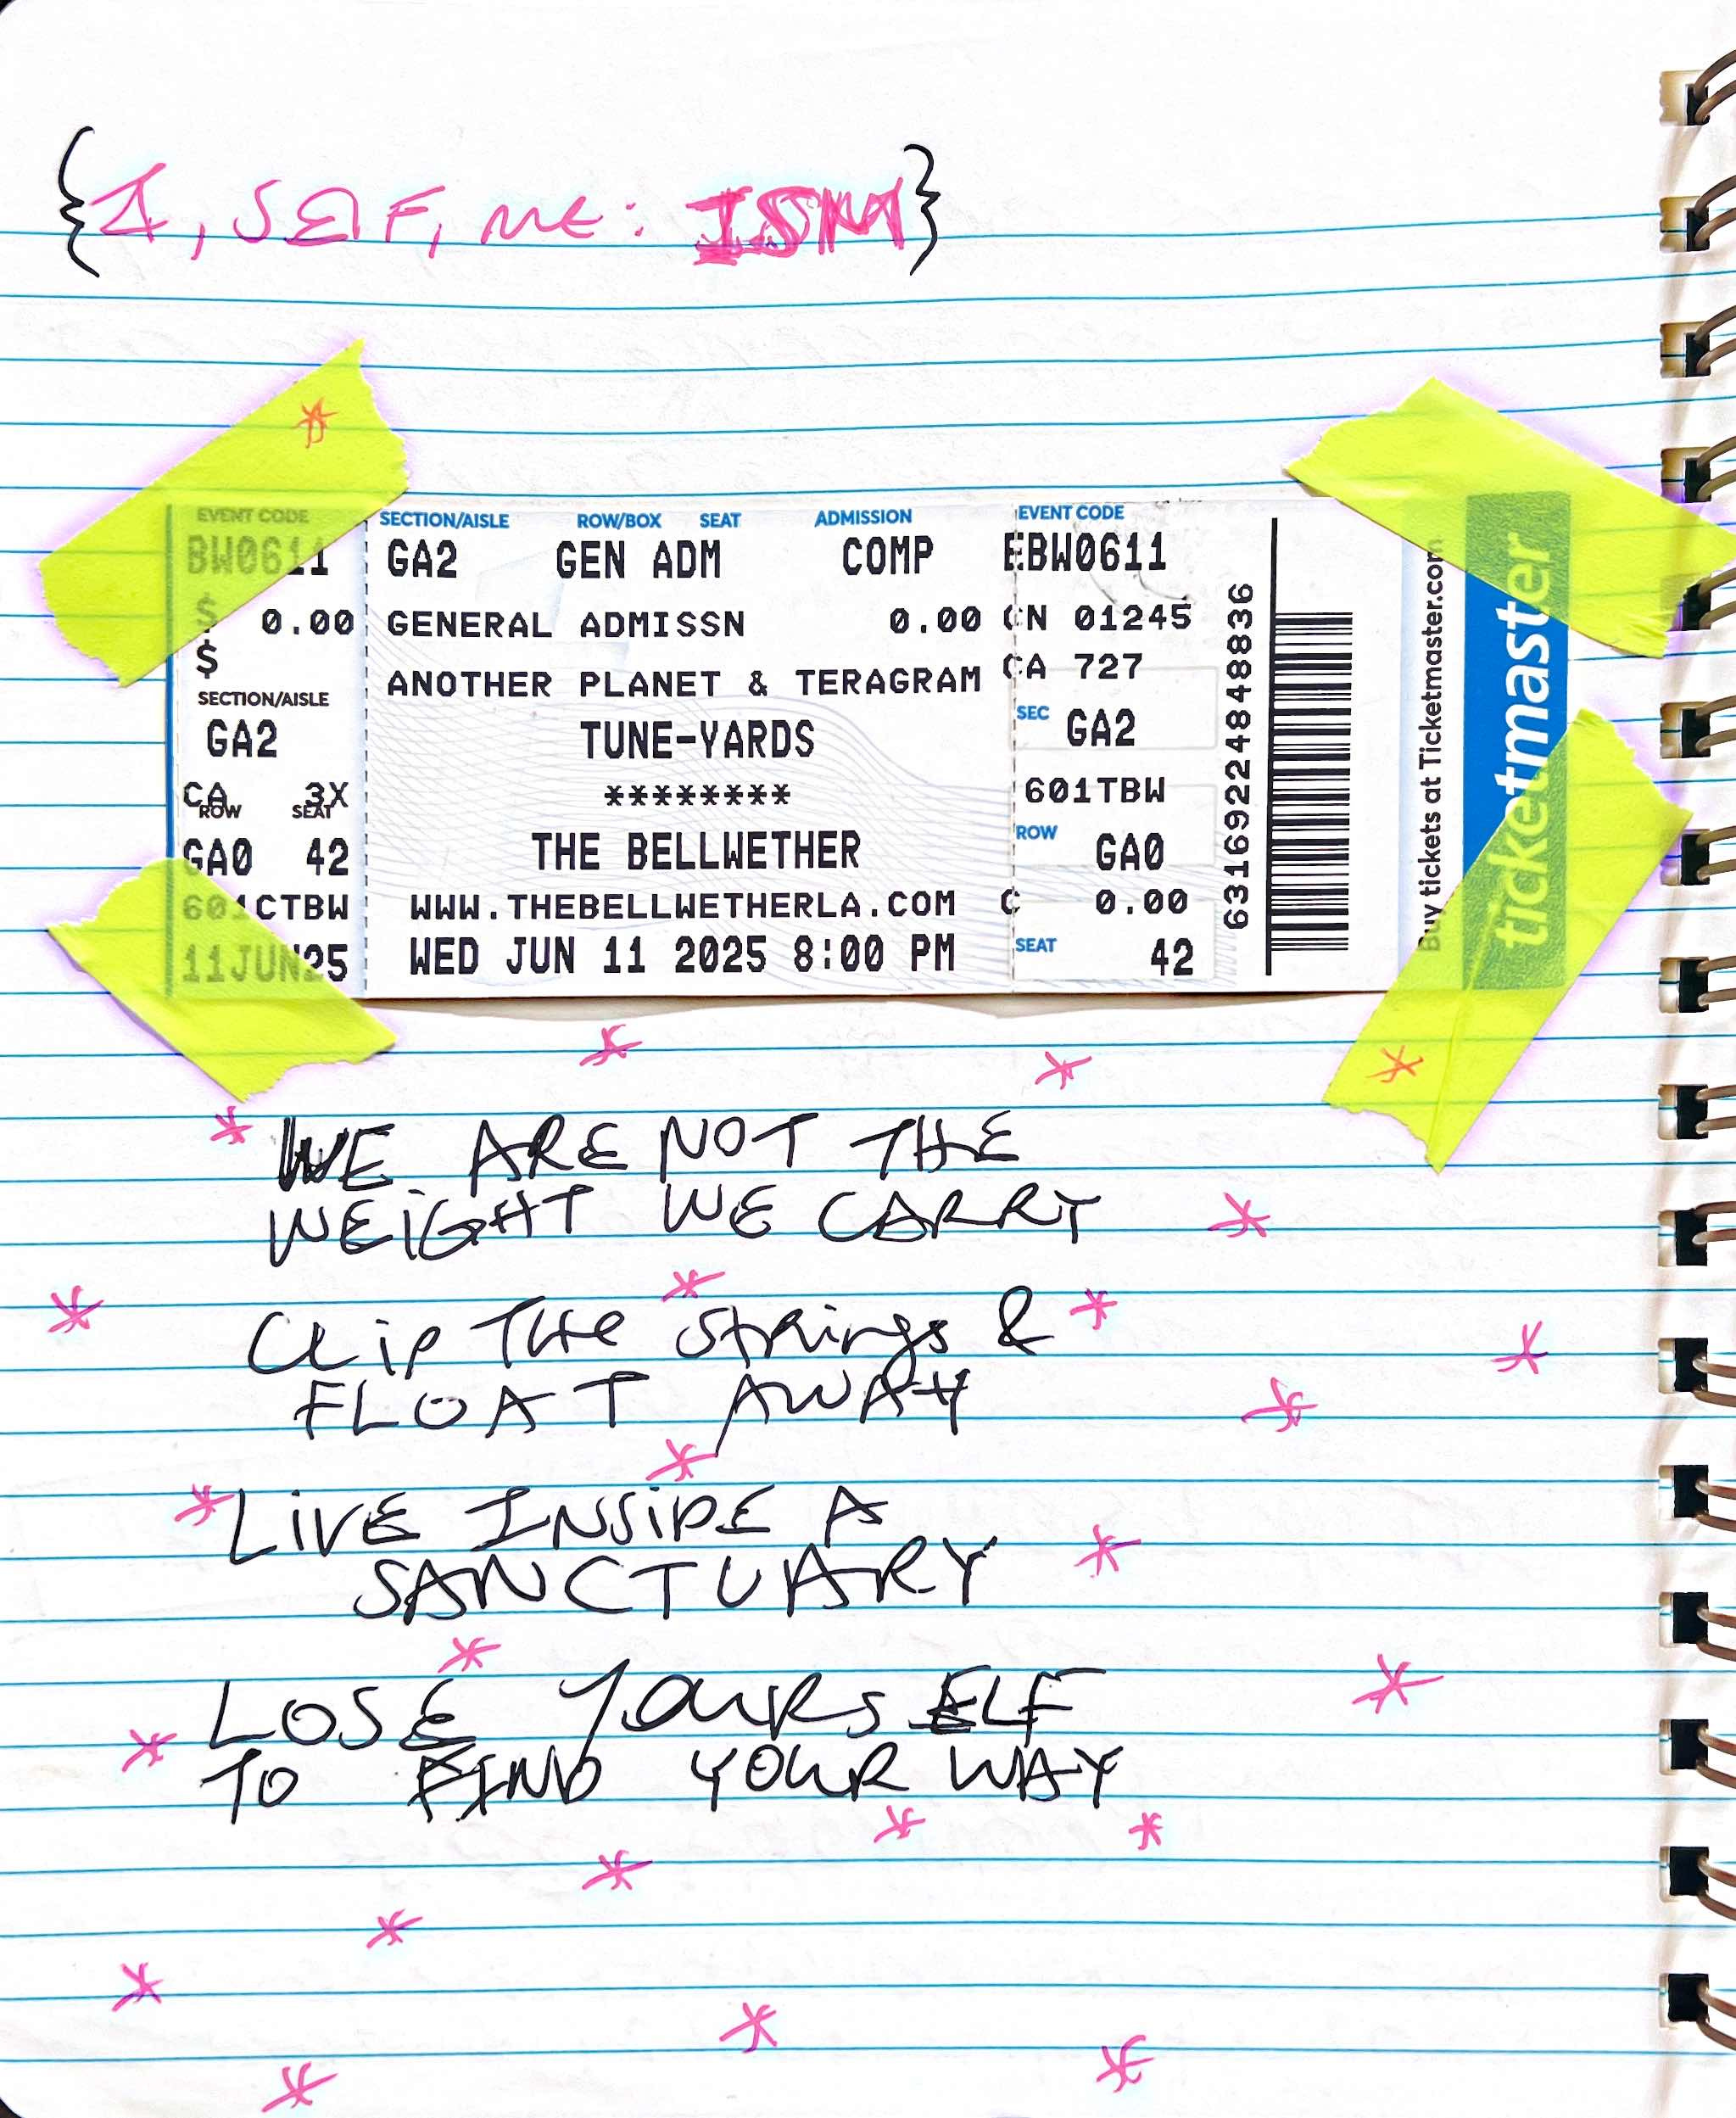 {I, SELF, ME: ISM}
EVENT CODE
BW0611
$ 0.00
$
SECTION/AISLE
GA2
CA 3X
ROW SEAT
GA0 42
601CTBW
11JUN25
SECTION/AISLE ROW/BOX SEAT ADMISSION
GA2 GEN ADM COMP
GENERAL ADMISSN 0.00
ANOTHER PLANET & TERAGRAM
TUNE-YARDS
********
THE BELLWETHER
WWW.THEBELLWETHERLA.COM
WED JUN 11 2025 8:00 PM
EVENT CODE
EBW0611
CN 01245
CA 727
SEC GA2
601TBW
ROW GA0
C 0.00
SEAT 42
63169224848836
Buy tickets at Ticketmaster.com
ticketmaster
* WE ARE NOT THE
WEiGHT WE CARRY
CLiP THe StRings &
FLOAT AWAY
* LiVE INSiDE A
SANCTUARY
LOSE YOURSELF
TO FIND YOUR WAY